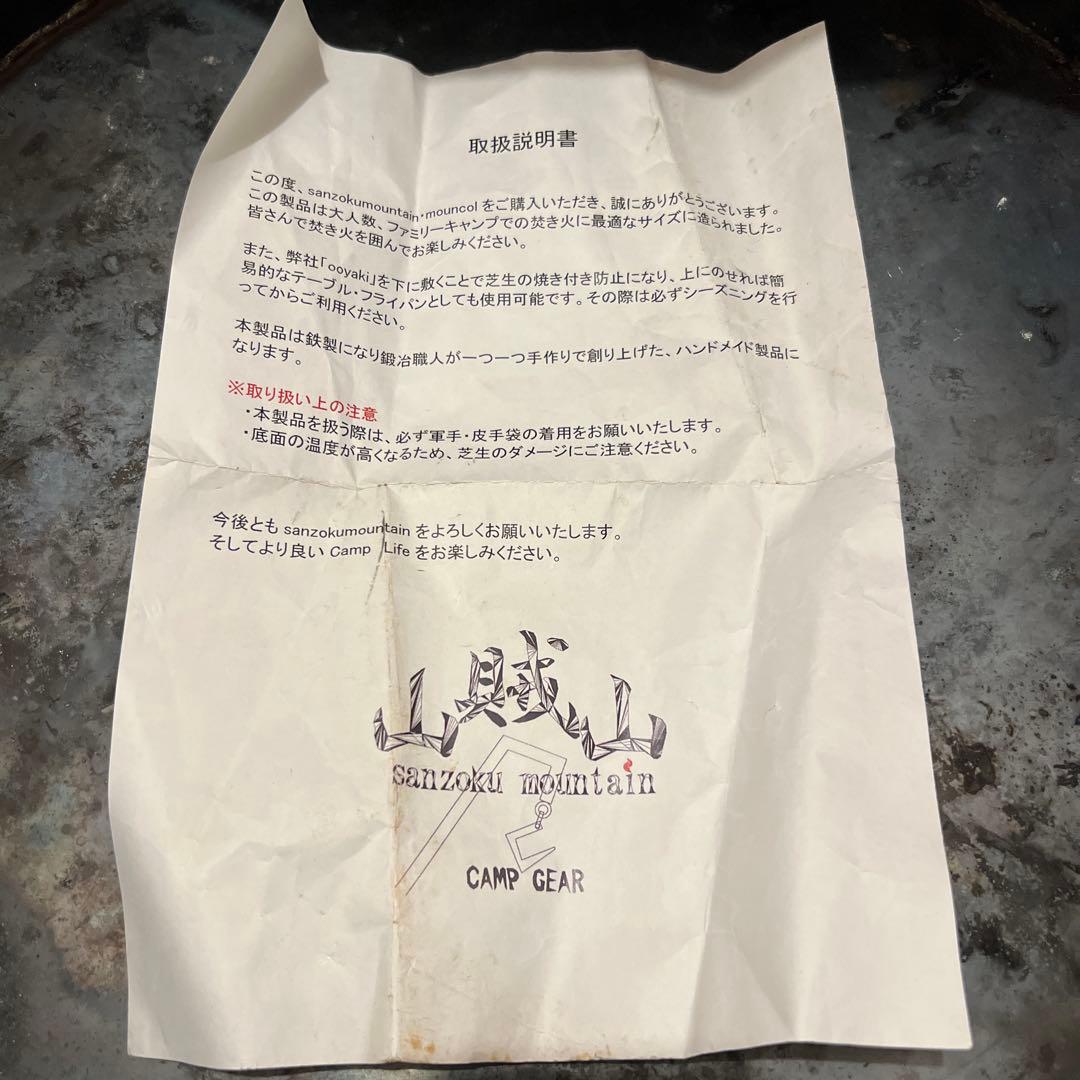 取扱説明書
この度、sanzokumountain・mouncol をご購入いただき、誠にありがとうございます。
この製品は大人数、ファミリーキャンプでの焚き火に最適なサイズに造られました。
皆さんで焚き火を囲んでお楽しみください。
また、弊社「ooyaki」を下に敷くことで芝生の焼き付き防止になり、上にのせれば簡
易的なテーブル・フライパンとしても使用可能です。その際は必ずシーズニングを行
ってからご利用ください。
本製品は鉄製になり鍛冶職人が一つ一つ手作りで創り上げた、ハンドメイド製品に
なります。
※取り扱い上の注意
・本製品を扱う際は、必ず軍手・皮手袋の着用をお願いいたします。
・底面の温度が高くなるため、芝生のダメージにご注意ください。
今後とも sanzokumountain をよろしくお願いいたします。
そしてより良い Camp Life をお楽しみください。
山賊山
sanzoku mountain
CAMP GEAR